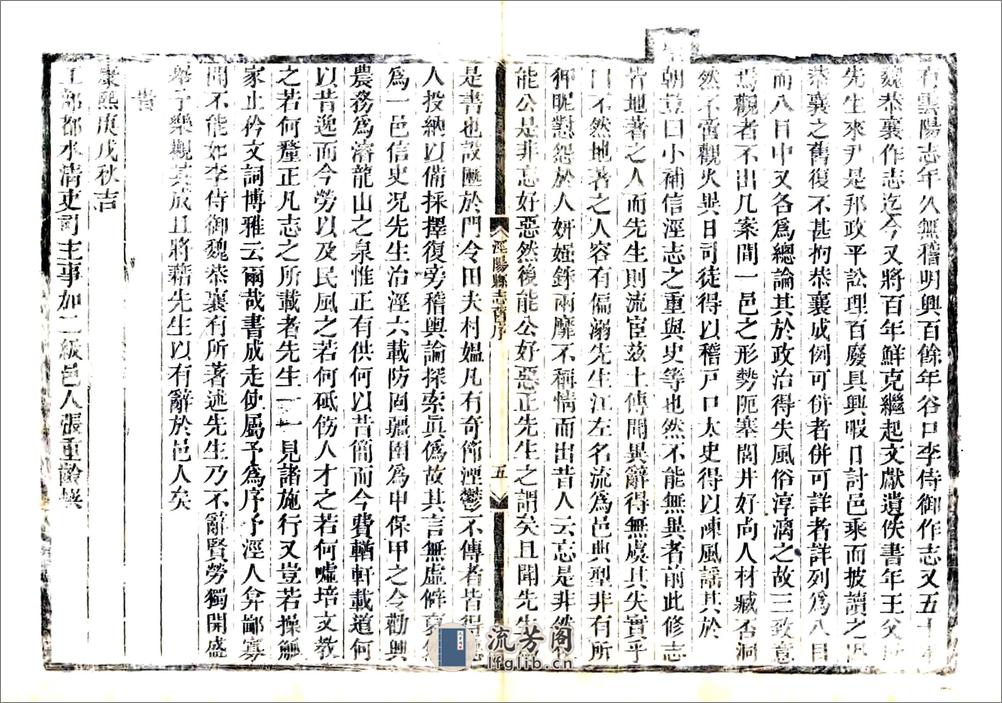 雲陽志年久無稽明興百餘年谷口李侍御作志又五十
魏恭襄作志迄今又將百年鮮克繼起文獻遺佚書年王父
先生來尹是邦政平訟理百廢具興暇日討邑乘而披讀之
恭襄之舊復不甚拘恭襄成例可併者併可詳者詳列為八目
而八目中又各為總論其於政治得失風俗淳漓之故三致意
焉觀者不出几案間一邑之形勢阨塞閭井好尚人材臧否洞
然不啻觀火異日司徒得以稽戶口太史得以陳風謠其於
朝豈曰小補信涇志之重與史等也然不能無異者前此修志
皆地著之人而先生則流宦茲土傳聞異辭得無虞其失實乎
曰不然地著之人容有偏溺先生江左名流為邑典型非有所
狎昵懟怨於人妍媸錙兩靡不稱情而出昔人云忘是非然後
能公是非忘好惡然後能公好惡正先生之謂矣且聞先生
涇陽縣志舊序
五
是書也設匭於門令田夫村媼凡有奇節湮鬱不傳者皆得
人投納以備採擇復旁稽輿論探索真偽故其言無虛僻
為一邑信史況先生治涇六載防固疆圉為甲保甲之令勸興
農務為濬龍山之泉惟正有供何以昔簡而今費輶軒載道何
以昔逸而今勞以及民風之若何砥傚人才之若何噓培文教
之若何釐正凡志之所載者先生一一見諸施行又豈若操觚
家止矜文詞博雅云爾哉書成走使屬予為序予涇人弇鄙寡
聞不能如李侍御魏恭襄有所著述先生乃不辭賢勞獨開盛
舉予樂觀其成且將藉先生以有辭於邑人矣
旹
康熙庚戌秋吉
工部都水清吏司主事加二級邑人張重齡
流芳阁
lfglib.cn